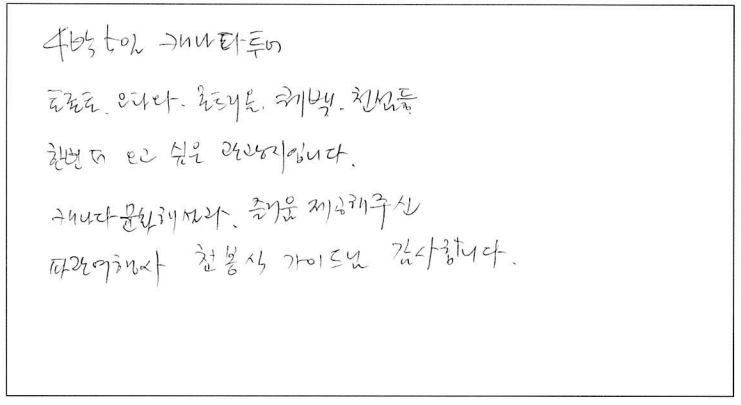 4박5일 캐나다투어
토론토. 오타와. 몬트리올. 퀘벡. 천섬등
한번 더 오고 싶은 관광지입니다.
캐나다문화해설과, 즐거움 제공해주신
파란여행사 천봉식 가이드님 감사합니다.